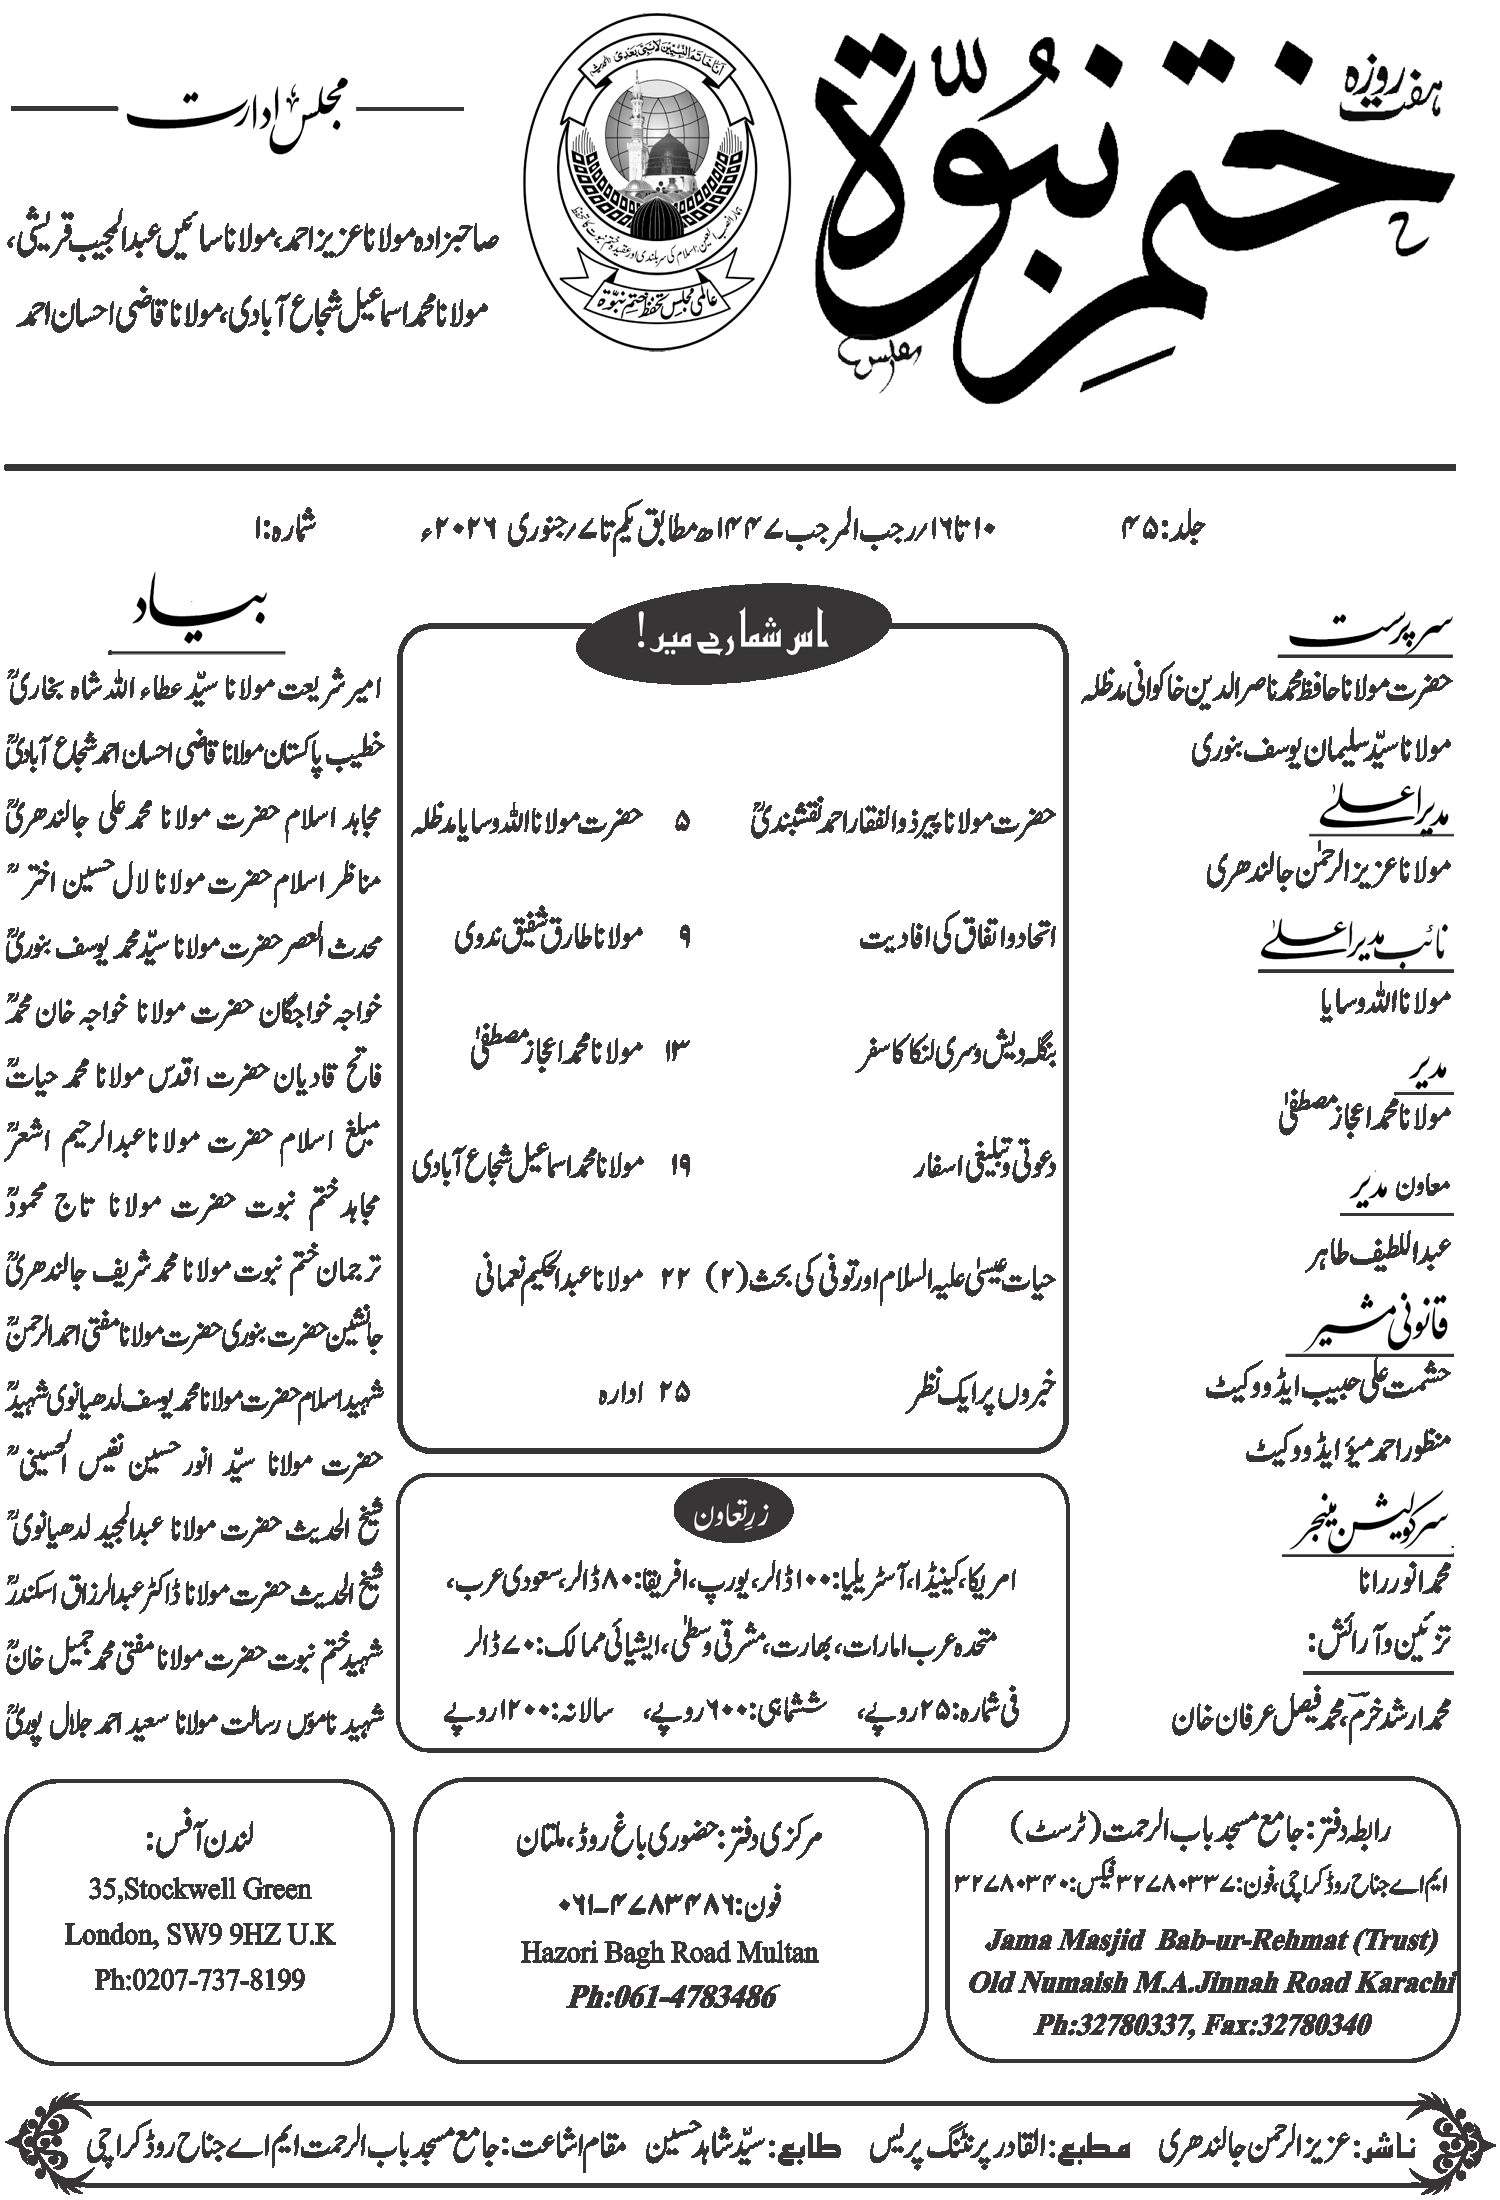 ہفت روزہ
ختم نبوّۃ
اَنَا خَاتَمُ النَّبِیّیْنَ لَا نَبِیَّ بَعْدِیْ
عالمی مجلس تحفظ ختم نبوّۃ
مجلس ادارت
صاحبزادہ مولانا عزیز احمد، مولانا سائیں عبدالمجیب قریشی،
مولانا محمد اسماعیل شجاع آبادی، مولانا قاضی احسان احمد
جلد: ۴۵ ۱۰ تا ۱۶؍رجب المرجب ۱۴۴۷ھ مطابق یکم تا ۷؍جنوری ۲۰۲۶ء شمارہ: ۱
سرپرست
حضرت مولانا حافظ محمد ناصر الدین خاکوانی مدظلہ
مولانا سیّد سلیمان یوسف بنوری
مدیر اعلیٰ
مولانا عزیز الرحمٰن جالندھری
نائب مدیر اعلیٰ
مولانا اللہ وسایا
مدیر
مولانا محمد اعجاز مصطفیٰ
معاون مدیر
عبداللطیف طاہر
قانونی مشیر
حشمت علی حبیب ایڈووکیٹ
منظور احمد میؤ ایڈووکیٹ
سرکولیشن مینجر
محمد انور رانا
تزئین و آرائش:
محمد ارشد خرم، محمد فیصل عرفان خان
اس شمارے میں!
حضرت مولانا پیر ذوالفقار احمد نقشبندیؒ ۵ حضرت مولانا اللہ وسایا مدظلہ
اتحاد و اتفاق کی افادیت ۹ مولانا طارق شفیق ندوی
بنگلہ دیش و سری لنکا کا سفر ۱۳ مولانا محمد اعجاز مصطفیٰ
دعوتی و تبلیغی اسفار ۱۹ مولانا محمد اسماعیل شجاع آبادی
حیات عیسیٰ علیہ السلام اور توفی کی بحث (۲) ۲۲ مولانا عبدالحکیم نعمانی
خبروں پر ایک نظر ۲۵ ادارہ
زرِ تعاون
امریکا، کینیڈا، آسٹریلیا: ۱۰۰ ڈالر، یورپ، افریقا: ۸۰ ڈالر، سعودی عرب،
متحدہ عرب امارات، بھارت، مشرقِ وسطیٰ، ایشیائی ممالک: ۷۰ ڈالر
فی شمارہ: ۲۵ روپے، ششماہی: ۶۰۰ روپے، سالانہ: ۱۲۰۰ روپے
بیاد
امیر شریعت مولانا سیّد عطاء اللہ شاہ بخاریؒ
خطیب پاکستان مولانا قاضی احسان احمد شجاع آبادیؒ
مجاہد اسلام حضرت مولانا محمد علی جالندھریؒ
مناظر اسلام حضرت مولانا لال حسین اخترؒ
محدث العصر حضرت مولانا سیّد محمد یوسف بنوریؒ
خواجہ خواجگان حضرت مولانا خواجہ خان محمدؒ
فاتح قادیان حضرت اقدس مولانا محمد حیاتؒ
مبلغ اسلام حضرت مولانا عبدالرحیم اشعرؒ
مجاہد ختم نبوت حضرت مولانا تاج محمودؒ
ترجمان ختم نبوت مولانا محمد شریف جالندھریؒ
جانشین حضرت بنوری حضرت مولانا مفتی احمد الرحمنؒ
شہید اسلام حضرت مولانا محمد یوسف لدھیانوی شہیدؒ
حضرت مولانا سیّد انور حسین نفیس الحسینیؒ
شیخ الحدیث حضرت مولانا عبدالمجید لدھیانویؒ
شیخ الحدیث حضرت مولانا ڈاکٹر عبدالرزاق اسکندرؒ
شہید ختم نبوت حضرت مولانا مفتی محمد جمیل خانؒ
شہید ناموس رسالت مولانا سعید احمد جلال پوریؒ
رابطہ دفتر: جامع مسجد باب الرحمت (ٹرسٹ)
ایم اے جناح روڈ کراچی، فون: ۳۲۷۸۰۳۳۷ فیکس: ۳۲۷۸۰۳۴۰
Jama Masjid Bab-ur-Rehmat (Trust)
Old Numaish M.A.Jinnah Road Karachi
Ph:32780337, Fax:32780340
مرکزی دفتر: حضوری باغ روڈ، ملتان
فون: ۰۶۱-۴۷۸۳۴۸۶
Hazori Bagh Road Multan
Ph:061-4783486
لندن آفس:
35,Stockwell Green
London, SW9 9HZ U.K
Ph:0207-737-8199
ناشر: عزیز الرحمن جالندھری مطبع: القادر پرنٹنگ پریس طابع: سیّد شاہد حسین مقام اشاعت: جامع مسجد باب الرحمت ایم اے جناح روڈ کراچی